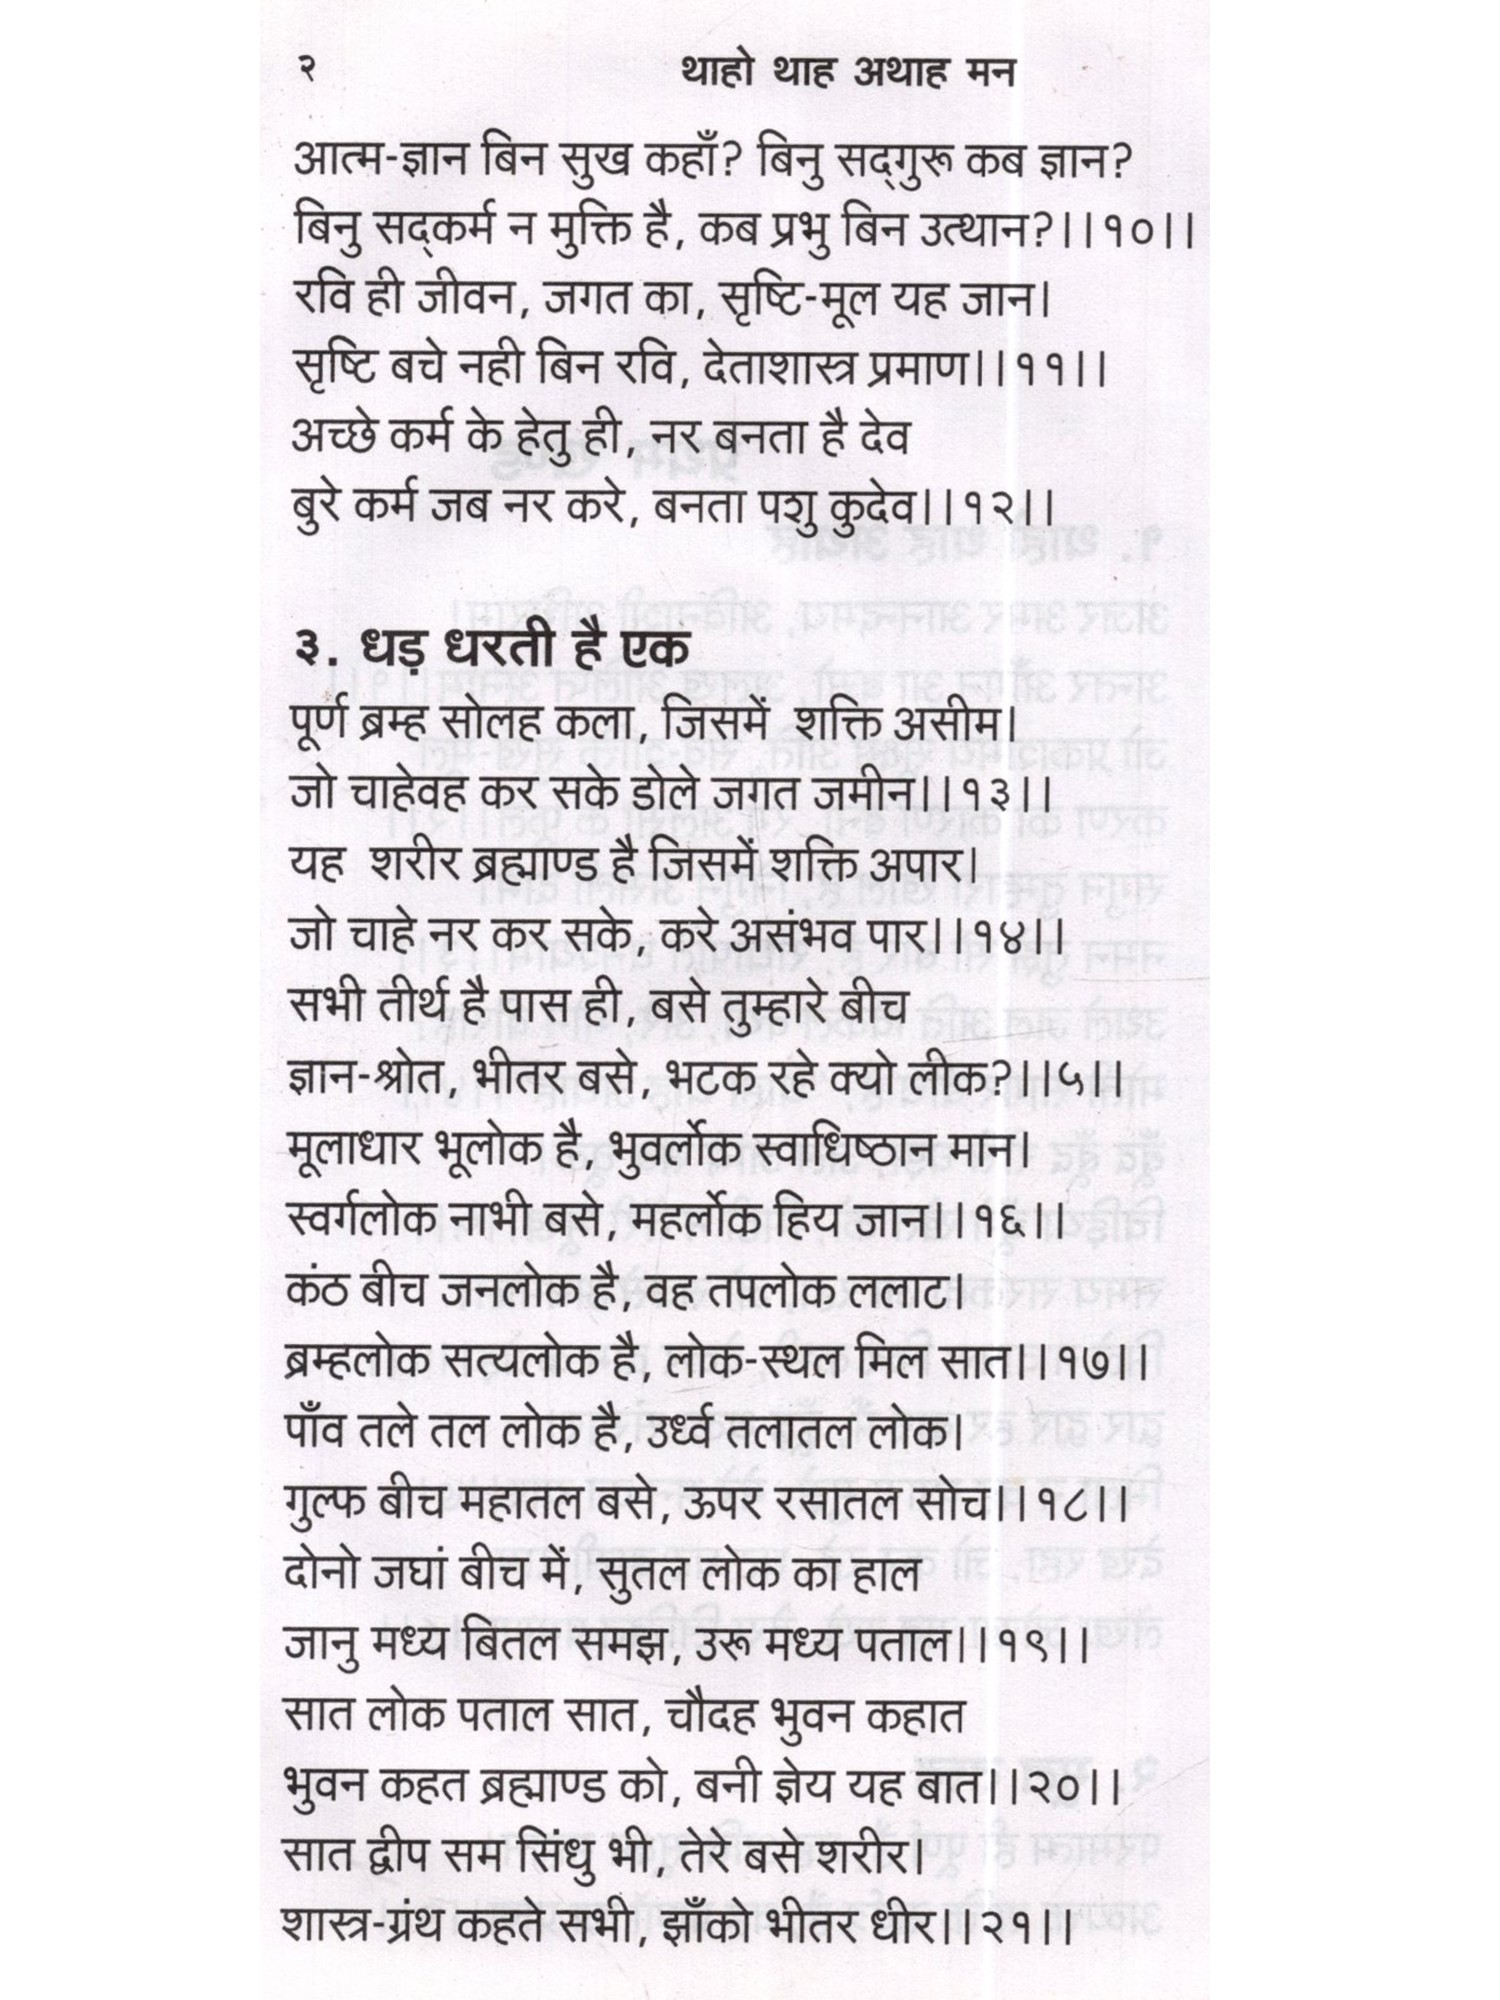 २ थाहो थाह अथाह मन
आत्म-ज्ञान बिन सुख कहाँ? बिनु सद्‌गुरू कब ज्ञान?
बिनु सद्कर्म न मुक्ति है, कब प्रभु बिन उत्थान?।।१०।।
रवि ही जीवन, जगत का, सृष्टि-मूल यह जान।
सृष्टि बचे नही बिन रवि, देताशास्त्र प्रमाण।।११।।
अच्छे कर्म के हेतु ही, नर बनता है देव
बुरे कर्म जब नर करे, बनता पशु कुदेव।।१२।।
३. धड़ धरती है एक
पूर्ण ब्रम्ह सोलह कला, जिसमें शक्ति असीम।
जो चाहेवह कर सके डोले जगत जमीन।।१३।।
यह शरीर ब्रह्माण्ड है जिसमें शक्ति अपार।
जो चाहे नर कर सके, करे असंभव पार।।१४।।
सभी तीर्थ है पास ही, बसे तुम्हारे बीच
ज्ञान-श्रोत, भीतर बसे, भटक रहे क्यो लीक?।।५।।
मूलाधार भूलोक है, भुवर्लोक स्वाधिष्ठान मान।
स्वर्गलोक नाभी बसे, महर्लोक हिय जान।।१६।।
कंठ बीच जनलोक है, वह तपलोक ललाट।
ब्रम्हलोक सत्यलोक है, लोक-स्थल मिल सात।।१७।।
पाँव तले तल लोक है, उर्ध्व तलातल लोक।
गुल्फ बीच महातल बसे, ऊपर रसातल सोच।।१८।।
दोनो जघां बीच में, सुतल लोक का हाल
जानु मध्य बितल समझ, उरू मध्य पताल।।१९।।
सात लोक पताल सात, चौदह भुवन कहात
भुवन कहत ब्रह्माण्ड को, बनी ज्ञेय यह बात।।२०।।
सात द्वीप सम सिंधु भी, तेरे बसे शरीर।
शास्त्र-ग्रंथ कहते सभी, झाँको भीतर धीर।।२१।।